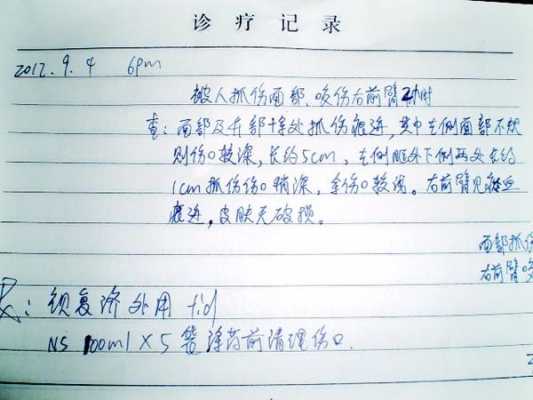 诊疗记录
2012.9.4 6pm
被人抓伤面部、咬伤右前臂2小时
查:面部及开部十余处抓伤痕迹,其中左侧面部不规
则伤口较深,长约5cm,左侧眶外下侧两处长约
1cm抓伤伤口稍深,余伤口较浅。右前臂见
痕迹,皮肤无破损。
面部抓伤
右前臂咬
外用 tid
NS 100ml×5 袋 涂药前清理伤口.